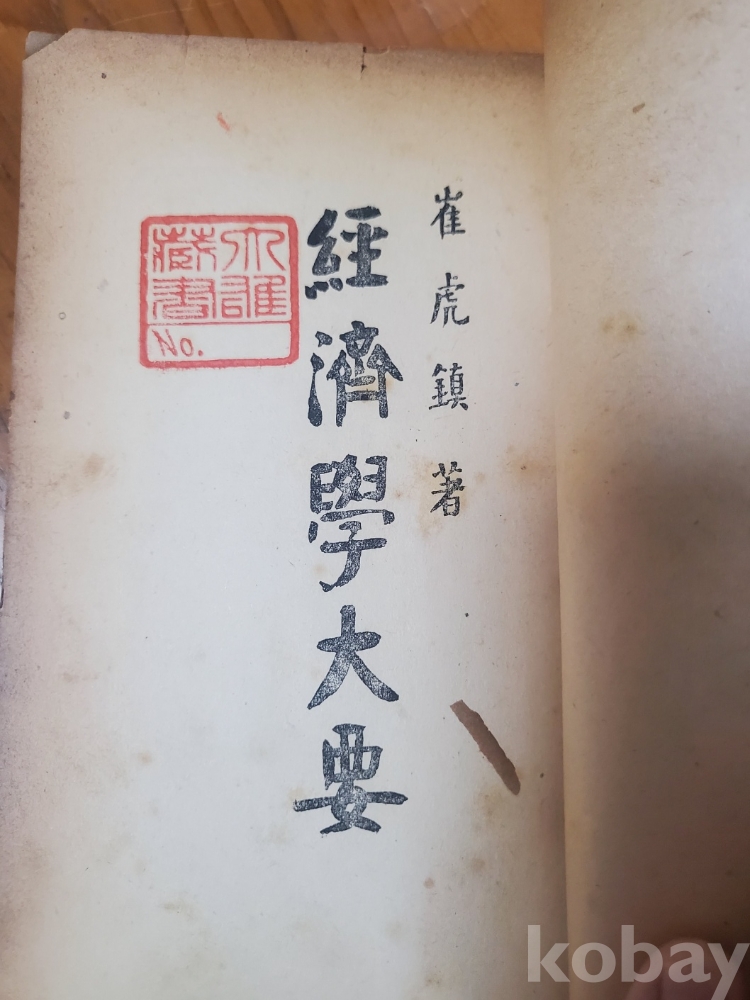 崔虎鎮 著
經濟學大要
藏書
No.
kobay